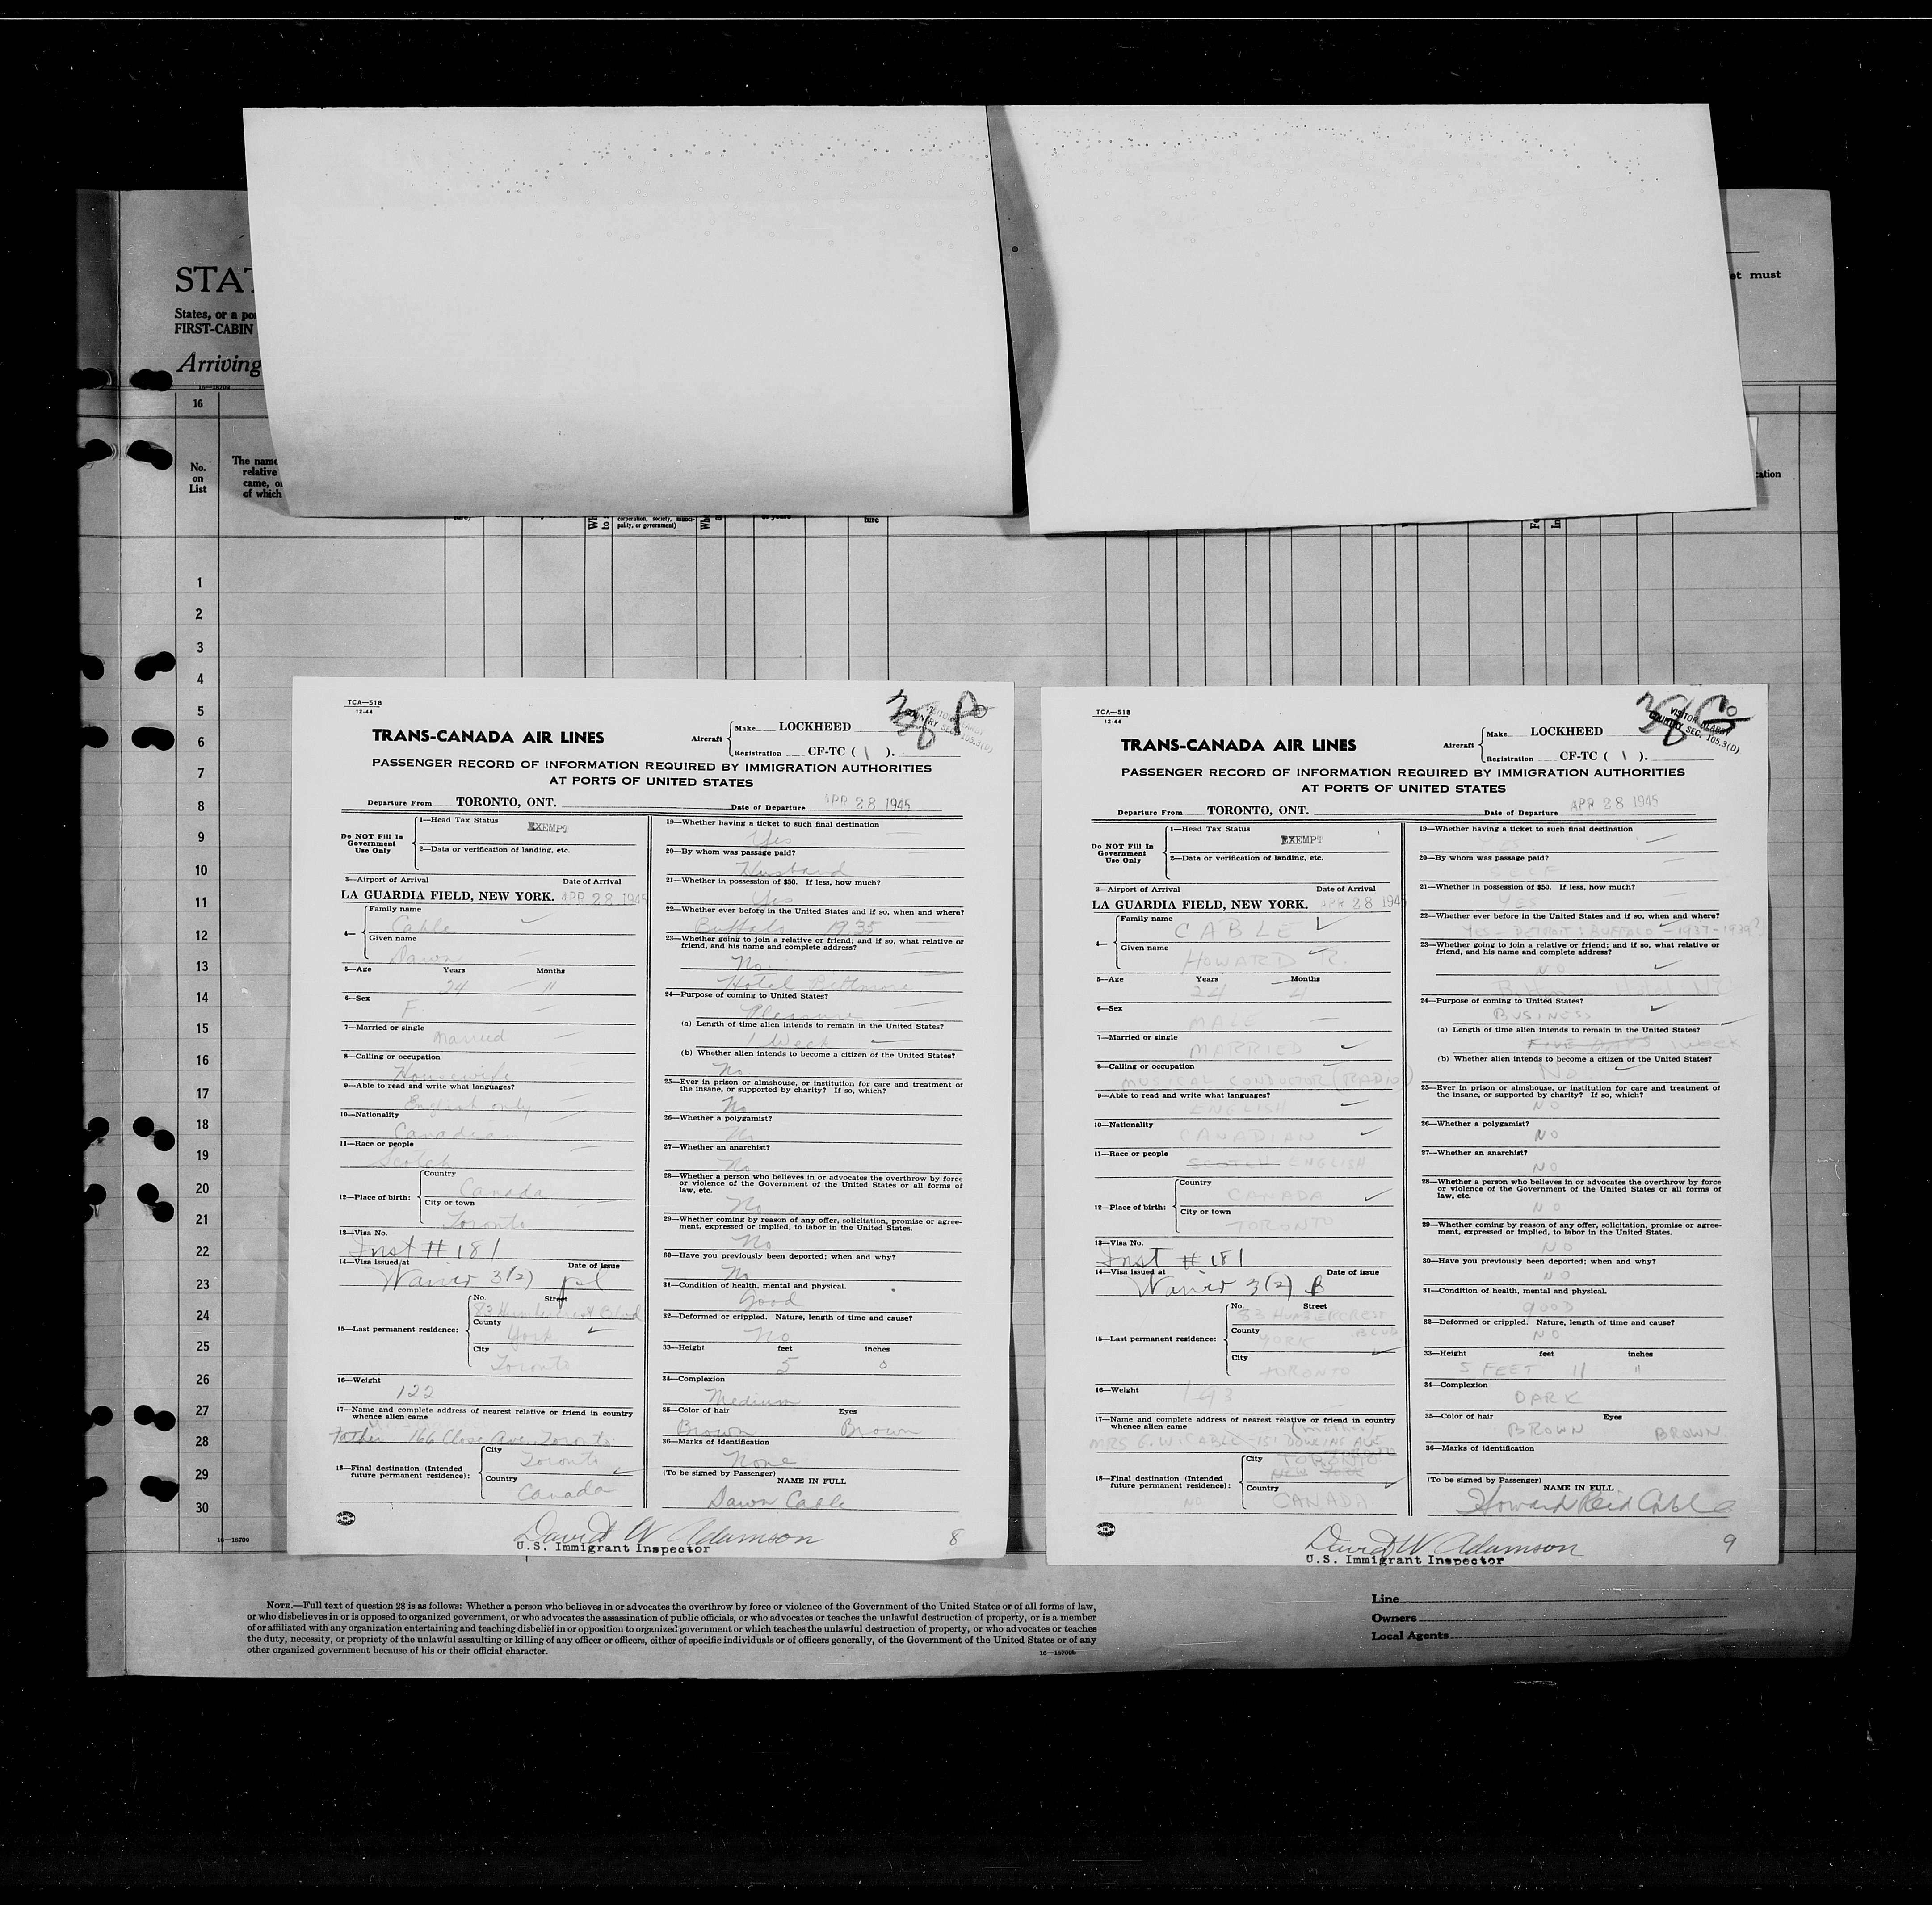 STAT
States, or a po
FIRST-CABIN
Arriving
16—18709
ot must
16
No.
on
List
The name
relative
came, o
of which
cation
corporation, society, munci-
pality, or government)
ture
1
2
3
4
5
6
7
8
9
10
11
12
13
14
15
16
17
18
19
20
21
22
23
24
25
26
27
28
29
30
16—18709
TCA—518
12-44
TRANS-CANADA AIR LINES
Aircraft
Make LOCKHEED
Registration CF-TC ( 1 ).
PASSENGER RECORD OF INFORMATION REQUIRED BY IMMIGRATION AUTHORITIES
AT PORTS OF UNITED STATES
Departure From TORONTO, ONT. Date of Departure APR 28 1945
Do NOT Fill In
Government
Use Only
1—Head Tax Status EXEMPT
2—Data or verification of landing, etc.
3—Airport of Arrival Date of Arrival
LA GUARDIA FIELD, NEW YORK. APR 28 1945
4—
Family name
Cable
Given name
Dawn
5—Age Years Months
24 11
6—Sex
F.
7—Married or single
Married
8—Calling or occupation
Housewife
9—Able to read and write what languages?
English only
10—Nationality
Canadian
11—Race or people
Scotch
12—Place of birth:
Country
Canada
City or town
Toronto
13—Visa No.
Inst # 181
14—Visa issued at Date of issue
Waiver 3(2)
15—Last permanent residence:
No. Street
83 Humbercrest Blvd
County
York
City
Toronto
16—Weight
122
17—Name and complete address of nearest relative or friend in country
whence alien came
Father 166 Close Ave. Toronto
18—Final destination (Intended
future permanent residence):
City
Toronto
Country
Canada
19—Whether having a ticket to such final destination
Yes
20—By whom was passage paid?
Husband
21—Whether in possession of $50. If less, how much?
Yes
22—Whether ever before in the United States and if so, when and where?
Buffalo 1935
23—Whether going to join a relative or friend; and if so, what relative or
friend, and his name and complete address?
No.
Hotel Biltmore
24—Purpose of coming to United States?
Pleasure
(a) Length of time alien intends to remain in the United States?
1 Week
(b) Whether alien intends to become a citizen of the United States?
No.
25—Ever in prison or almshouse, or institution for care and treatment of
the insane, or supported by charity? If so, which?
No
26—Whether a polygamist?
No
27—Whether an anarchist?
No
28—Whether a person who believes in or advocates the overthrow by force
or violence of the Government of the United States or all forms of
law, etc.
No
29—Whether coming by reason of any offer, solicitation, promise or agree-
ment, expressed or implied, to labor in the United States.
No
30—Have you previously been deported; when and why?
No
31—Condition of health, mental and physical.
Good
32—Deformed or crippled. Nature, length of time and cause?
No
33—Height feet inches
5 0
34—Complexion
Medium
35—Color of hair Eyes
Brown Brown
36—Marks of identification
None
(To be signed by Passenger)
NAME IN FULL
Dawn Cable
David W Adamson
U.S. Immigrant Inspector
8
TCA—518
12-44
VISITOR
COUNTRY SEC. 105.3(D)
TRANS-CANADA AIR LINES
Aircraft
Make LOCKHEED
Registration CF-TC ( 1 ).
PASSENGER RECORD OF INFORMATION REQUIRED BY IMMIGRATION AUTHORITIES
AT PORTS OF UNITED STATES
Departure From TORONTO, ONT. Date of Departure APR 28 1945
Do NOT Fill In
Government
Use Only
1—Head Tax Status EXEMPT
2—Data or verification of landing, etc.
3—Airport of Arrival Date of Arrival
LA GUARDIA FIELD, NEW YORK. APR 28 1945
4—
Family name
CABLE
Given name
HOWARD R.
5—Age Years Months
24 4
6—Sex
MALE
7—Married or single
MARRIED
8—Calling or occupation
MUSICAL CONDUCTOR (RADIO)
9—Able to read and write what languages?
ENGLISH
10—Nationality
CANADIAN
11—Race or people
SCOTCH ENGLISH
12—Place of birth:
Country
CANADA
City or town
TORONTO
13—Visa No.
Inst # 181
14—Visa issued at Date of issue
Waiver 3(2)
15—Last permanent residence:
No. Street
83 HUMBERCREST
BLVD
County
YORK
City
TORONTO
16—Weight
193
17—Name and complete address of nearest relative or friend in country
whence alien came (MOTHER)
MRS G. W. CABLE - 151 DOWLING AVE
18—Final destination (Intended
future permanent residence):
NO
City
TORONTO
NEW YORK
Country
CANADA
19—Whether having a ticket to such final destination
YES
20—By whom was passage paid?
SELF
21—Whether in possession of $50. If less, how much?
YES
22—Whether ever before in the United States and if so, when and where?
YES - DETROIT; BUFFALO - 1937-1939?
23—Whether going to join a relative or friend; and if so, what relative or
friend, and his name and complete address?
NO
Biltmore Hotel NY
24—Purpose of coming to United States?
BUSINESS
(a) Length of time alien intends to remain in the United States?
FIVE DAYS 1 WEEK
(b) Whether alien intends to become a citizen of the United States?
No
25—Ever in prison or almshouse, or institution for care and treatment of
the insane, or supported by charity? If so, which?
NO
26—Whether a polygamist?
NO
27—Whether an anarchist?
NO
28—Whether a person who believes in or advocates the overthrow by force
or violence of the Government of the United States or all forms of
law, etc.
NO
29—Whether coming by reason of any offer, solicitation, promise or agree-
ment, expressed or implied, to labor in the United States.
NO
30—Have you previously been deported; when and why?
NO
31—Condition of health, mental and physical.
GOOD
32—Deformed or crippled. Nature, length of time and cause?
NO
33—Height feet inches
5 FEET 11 "
34—Complexion
DARK
35—Color of hair Eyes
BROWN BROWN
36—Marks of identification
(To be signed by Passenger)
NAME IN FULL
Howard Reid Cable
David W Adamson
U.S. Immigrant Inspector
9
NOTE.—Full text of question 28 is as follows: Whether a person who believes in or advocates the overthrow by force or violence of the Government of the United States or of all forms of law,
or who disbelieves in or is opposed to organized government, or who advocates the assassination of public officials, or who advocates or teaches the unlawful destruction of property, or is a member
of or affiliated with any organization entertaining and teaching disbelief in or opposition to organized government or which teaches the unlawful destruction of property, or who advocates or teaches
the duty, necessity, or propriety of the unlawful assaulting or killing of any officer or officers, either of specific individuals or of officers generally, of the Government of the United States or of any
other organized government because of his or their official character.
16—18709b
Line
Owners
Local Agents